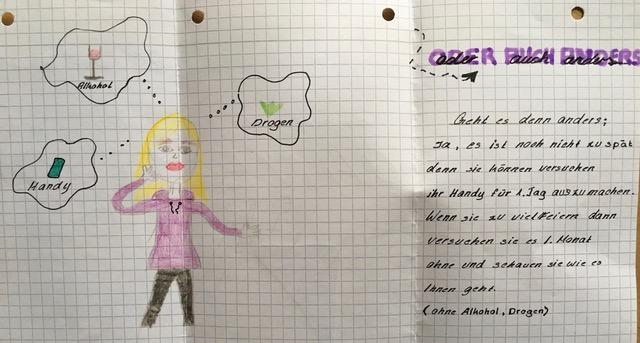 Alkohol
Drogen
Handy
ODER AUCH ANDERS
oder auch anders...
Geht es denn anders;
Ja, es ist noch nicht zu spät
denn sie können versuchen
ihr Handy für 1. Tag auszumachen.
Wenn sie zu viel Feiern dann
versuchen sie es 1. Monat
ohne und schauen sie wie es
Ihnen geht.
(ohne Alkohol, Drogen)